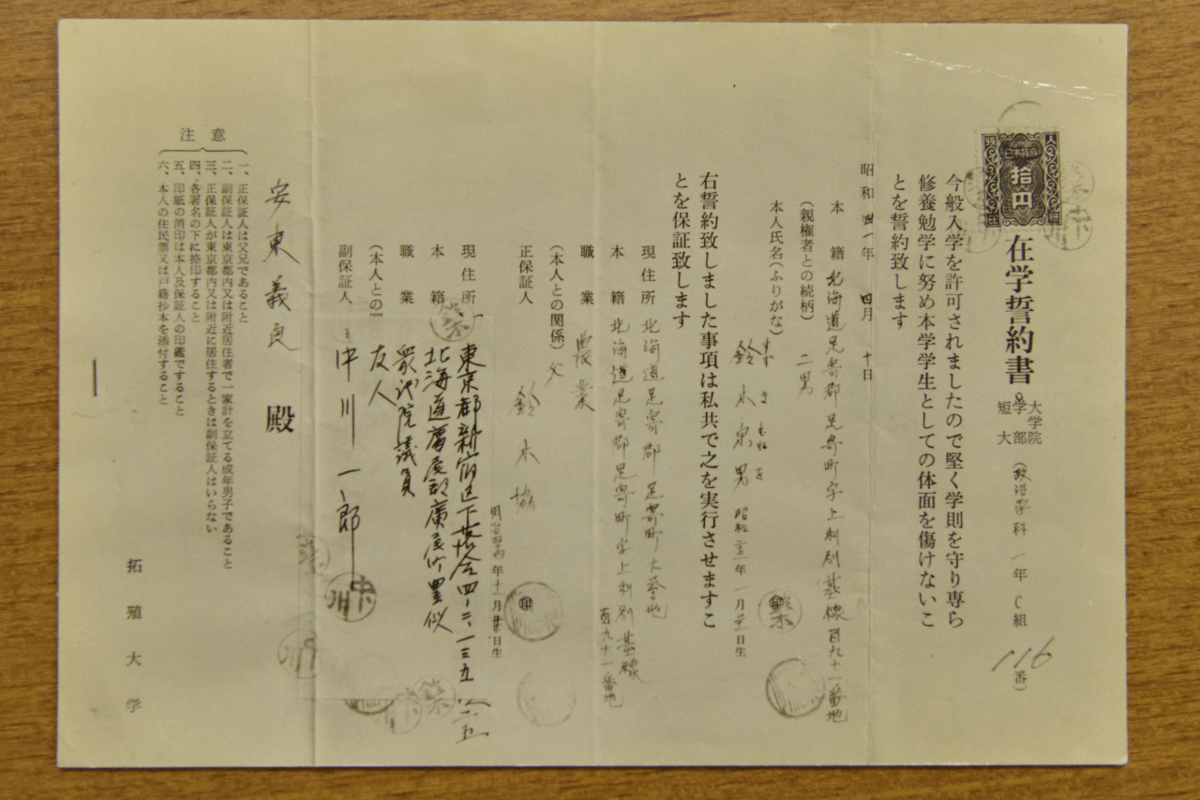 拾円
在学誓約書
大学院
学部
短大
(政治学科一年C組
116
番)
今般入学を許可されましたので堅く学則を守り専ら
修養勉学に努め本学学生としての体面を傷けないこ
とを誓約致します
昭和四一年 四月 十日
本籍 北海道足寄郡足寄町字上利別基線百九十一番地
(親権者との続柄) 二男
本人氏名(ふりがな) 鈴木宗男 昭和二三年一月 日生
すずきむねを
右誓約致しました事項は私共で之を実行させますこ
とを保証致します
現住所 北海道足寄郡足寄町大誉地
本籍 北海道足寄郡足寄町字上利別基線
百九十一番地
職業 農業
(本人との関係) 父
正保証人 鈴木
明治 年十一月 日生
印
現住所 東京都新宿区下落合四ノ二ノ一三九
本籍 北海道広尾郡廣尾町豊似
職業 衆議院議員
(本人との 友人
副保証人 中川一郎
安東義良 殿
注意
一、正保証人は父兄であること
二、副保証人は東京都内又は附近居住者で一家計を立てる成年男子であること
三、正保証人が東京都内又は附近に居住するときは副保証人はいらない
四、各署名の下に捺印すること
五、印紙の消印は本人及保証人の印鑑ですること
六、本人の住民票又は戸籍抄本を添付すること
拓殖大学